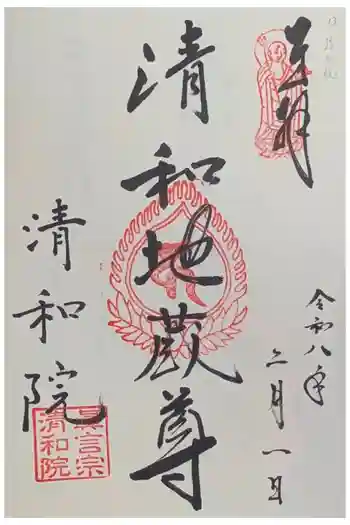 奉拝
令和八年
二月一日
清和地蔵尊
清和院
真言宗
清和院